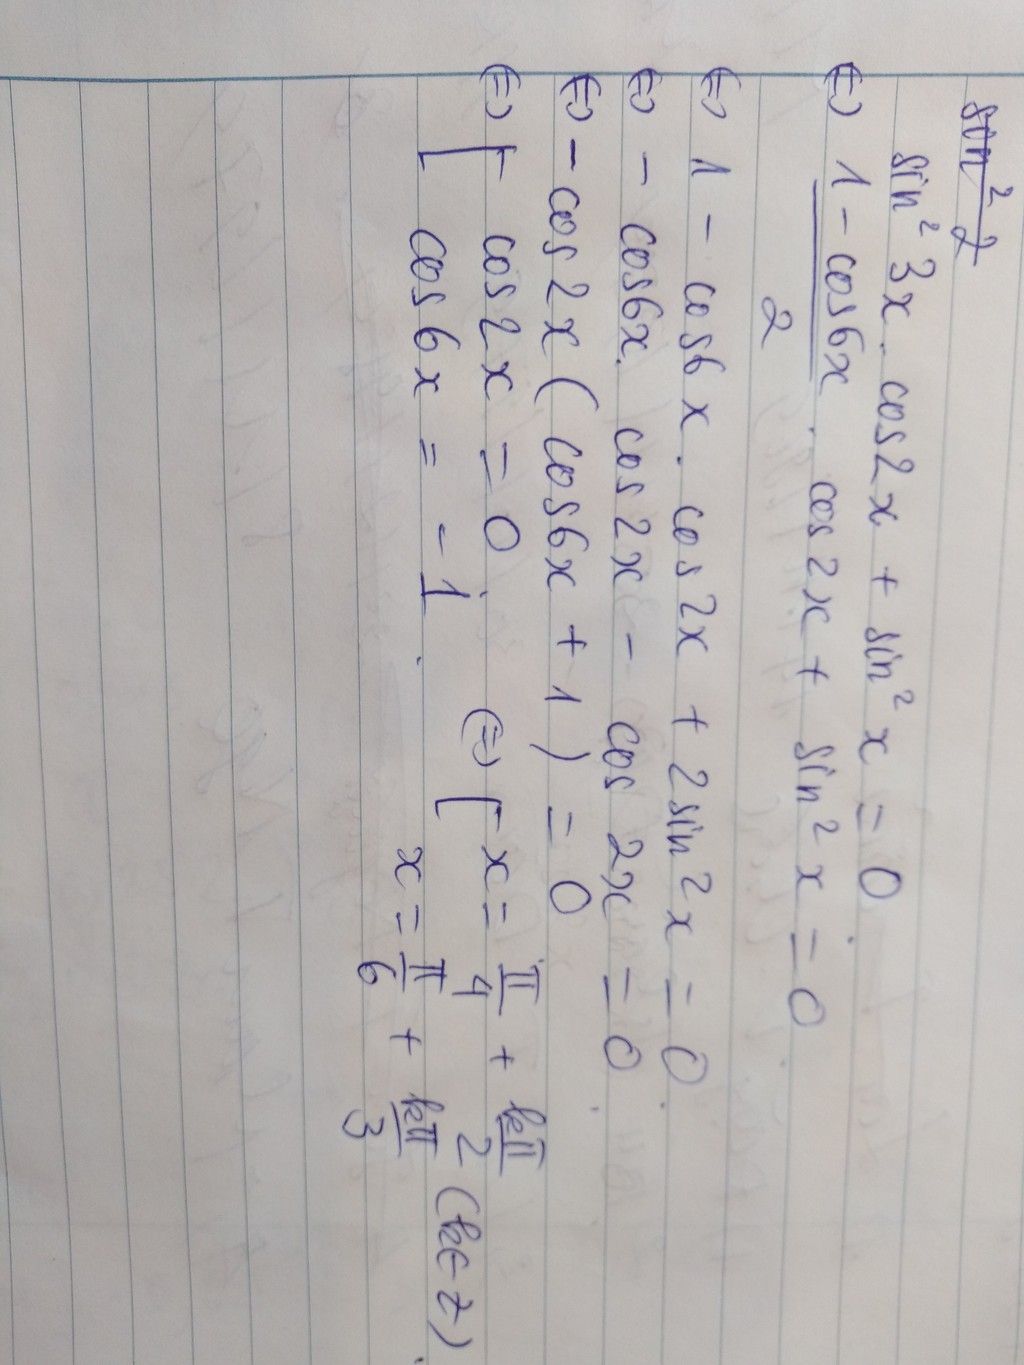 sin² 2
sin² 3x . cos2x + sin² x = 0
(=) 1 - cos6x . cos2x + sin² x = 0
2
(=) 1 - cos6x . cos2x + 2sin² x = 0
(=) - cos6x . cos2x - cos 2x = 0
(=) - cos2x ( cos6x + 1 ) = 0
(=) [ cos2x = 0 (=) [ x = π/4 + kπ/2
cos6x = -1 x = π/6 + kπ/3 (k∈Z)